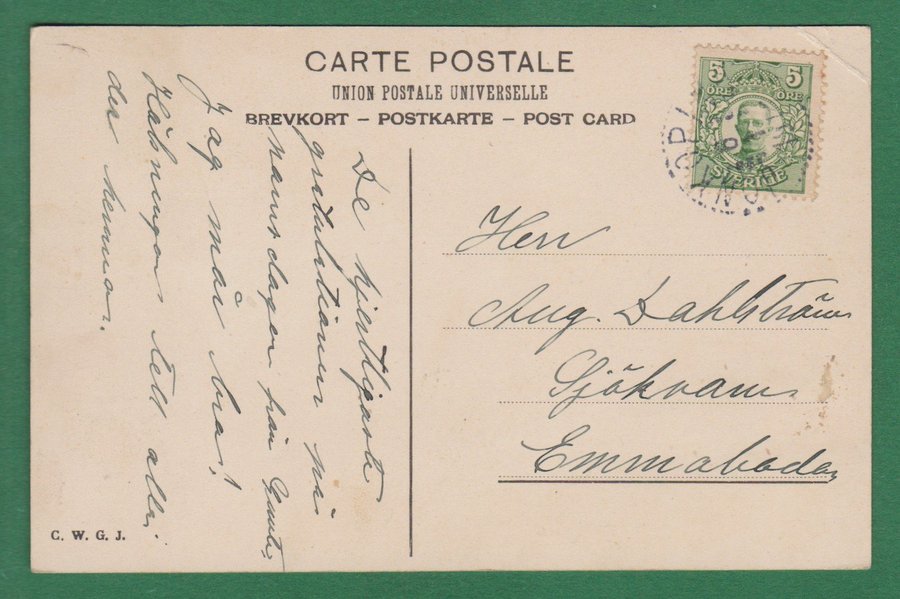 CARTE POSTALE
UNION POSTALE UNIVERSELLE
BREVKORT – POSTKARTE – POST CARD
5 5
ÖRE ÖRE
SVERIGE
De hjertligaste
gratulationer på
namnsdagen från
Jag mår bra!
Hälsningar till alla
der hemma.
Herr
Aug. Dahlström
Emmaboda
C. W. G. J.